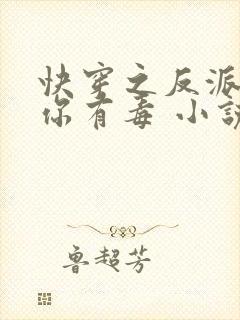 快穿之反派
你有毒 小说
鲁超芳